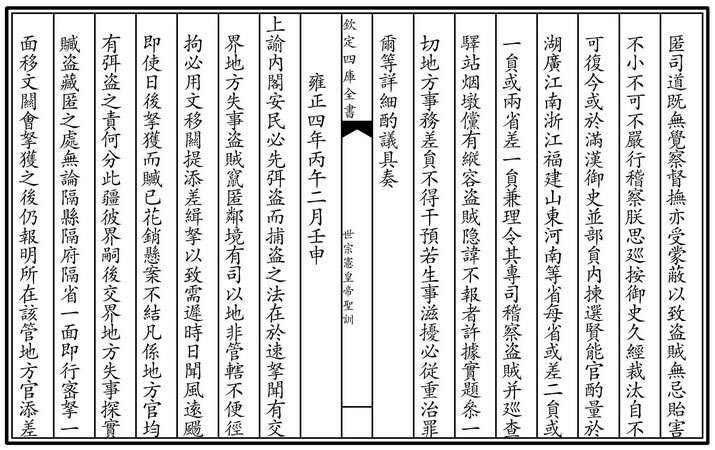 匿司道既無覺察督撫亦受蒙蔽以致盜賊無忌貽害
不小不可不嚴行稽察朕思廵按御史久經裁汰自不
可復今或於滿漢御史並部員内揀選賢能官酌量於
湖廣江南浙江福建山東河南等省每省或差二員或
一員或兩省差一員兼理令其專司稽察盜賊并廵查
驛站烟墩儻有縱容盜賊隐諱不報者許據實題叅一
切地方事務差員不得干預若生事滋擾必從重治罪
爾等詳細酌議具奏
欽定四庫全書
世宗憲皇帝聖訓
雍正四年丙午二月壬申
上諭内閣安民必先弭盜而捕盜之法在於速拏聞有交
界地方失事盜賊竄匿鄰境有司以地非管轄不便徑
拘必用文移關提添差緝拏以致需遲時日聞風遠颺
即使日後拏獲而贓已花銷懸案不結凡係地方官均
有弭盜之責何分此疆彼界嗣後交界地方失事探實
贓盜藏匿之處無論隔縣隔府隔省一面即行密拏一
面移文關會拏獲之後仍報明所在該管地方官添差